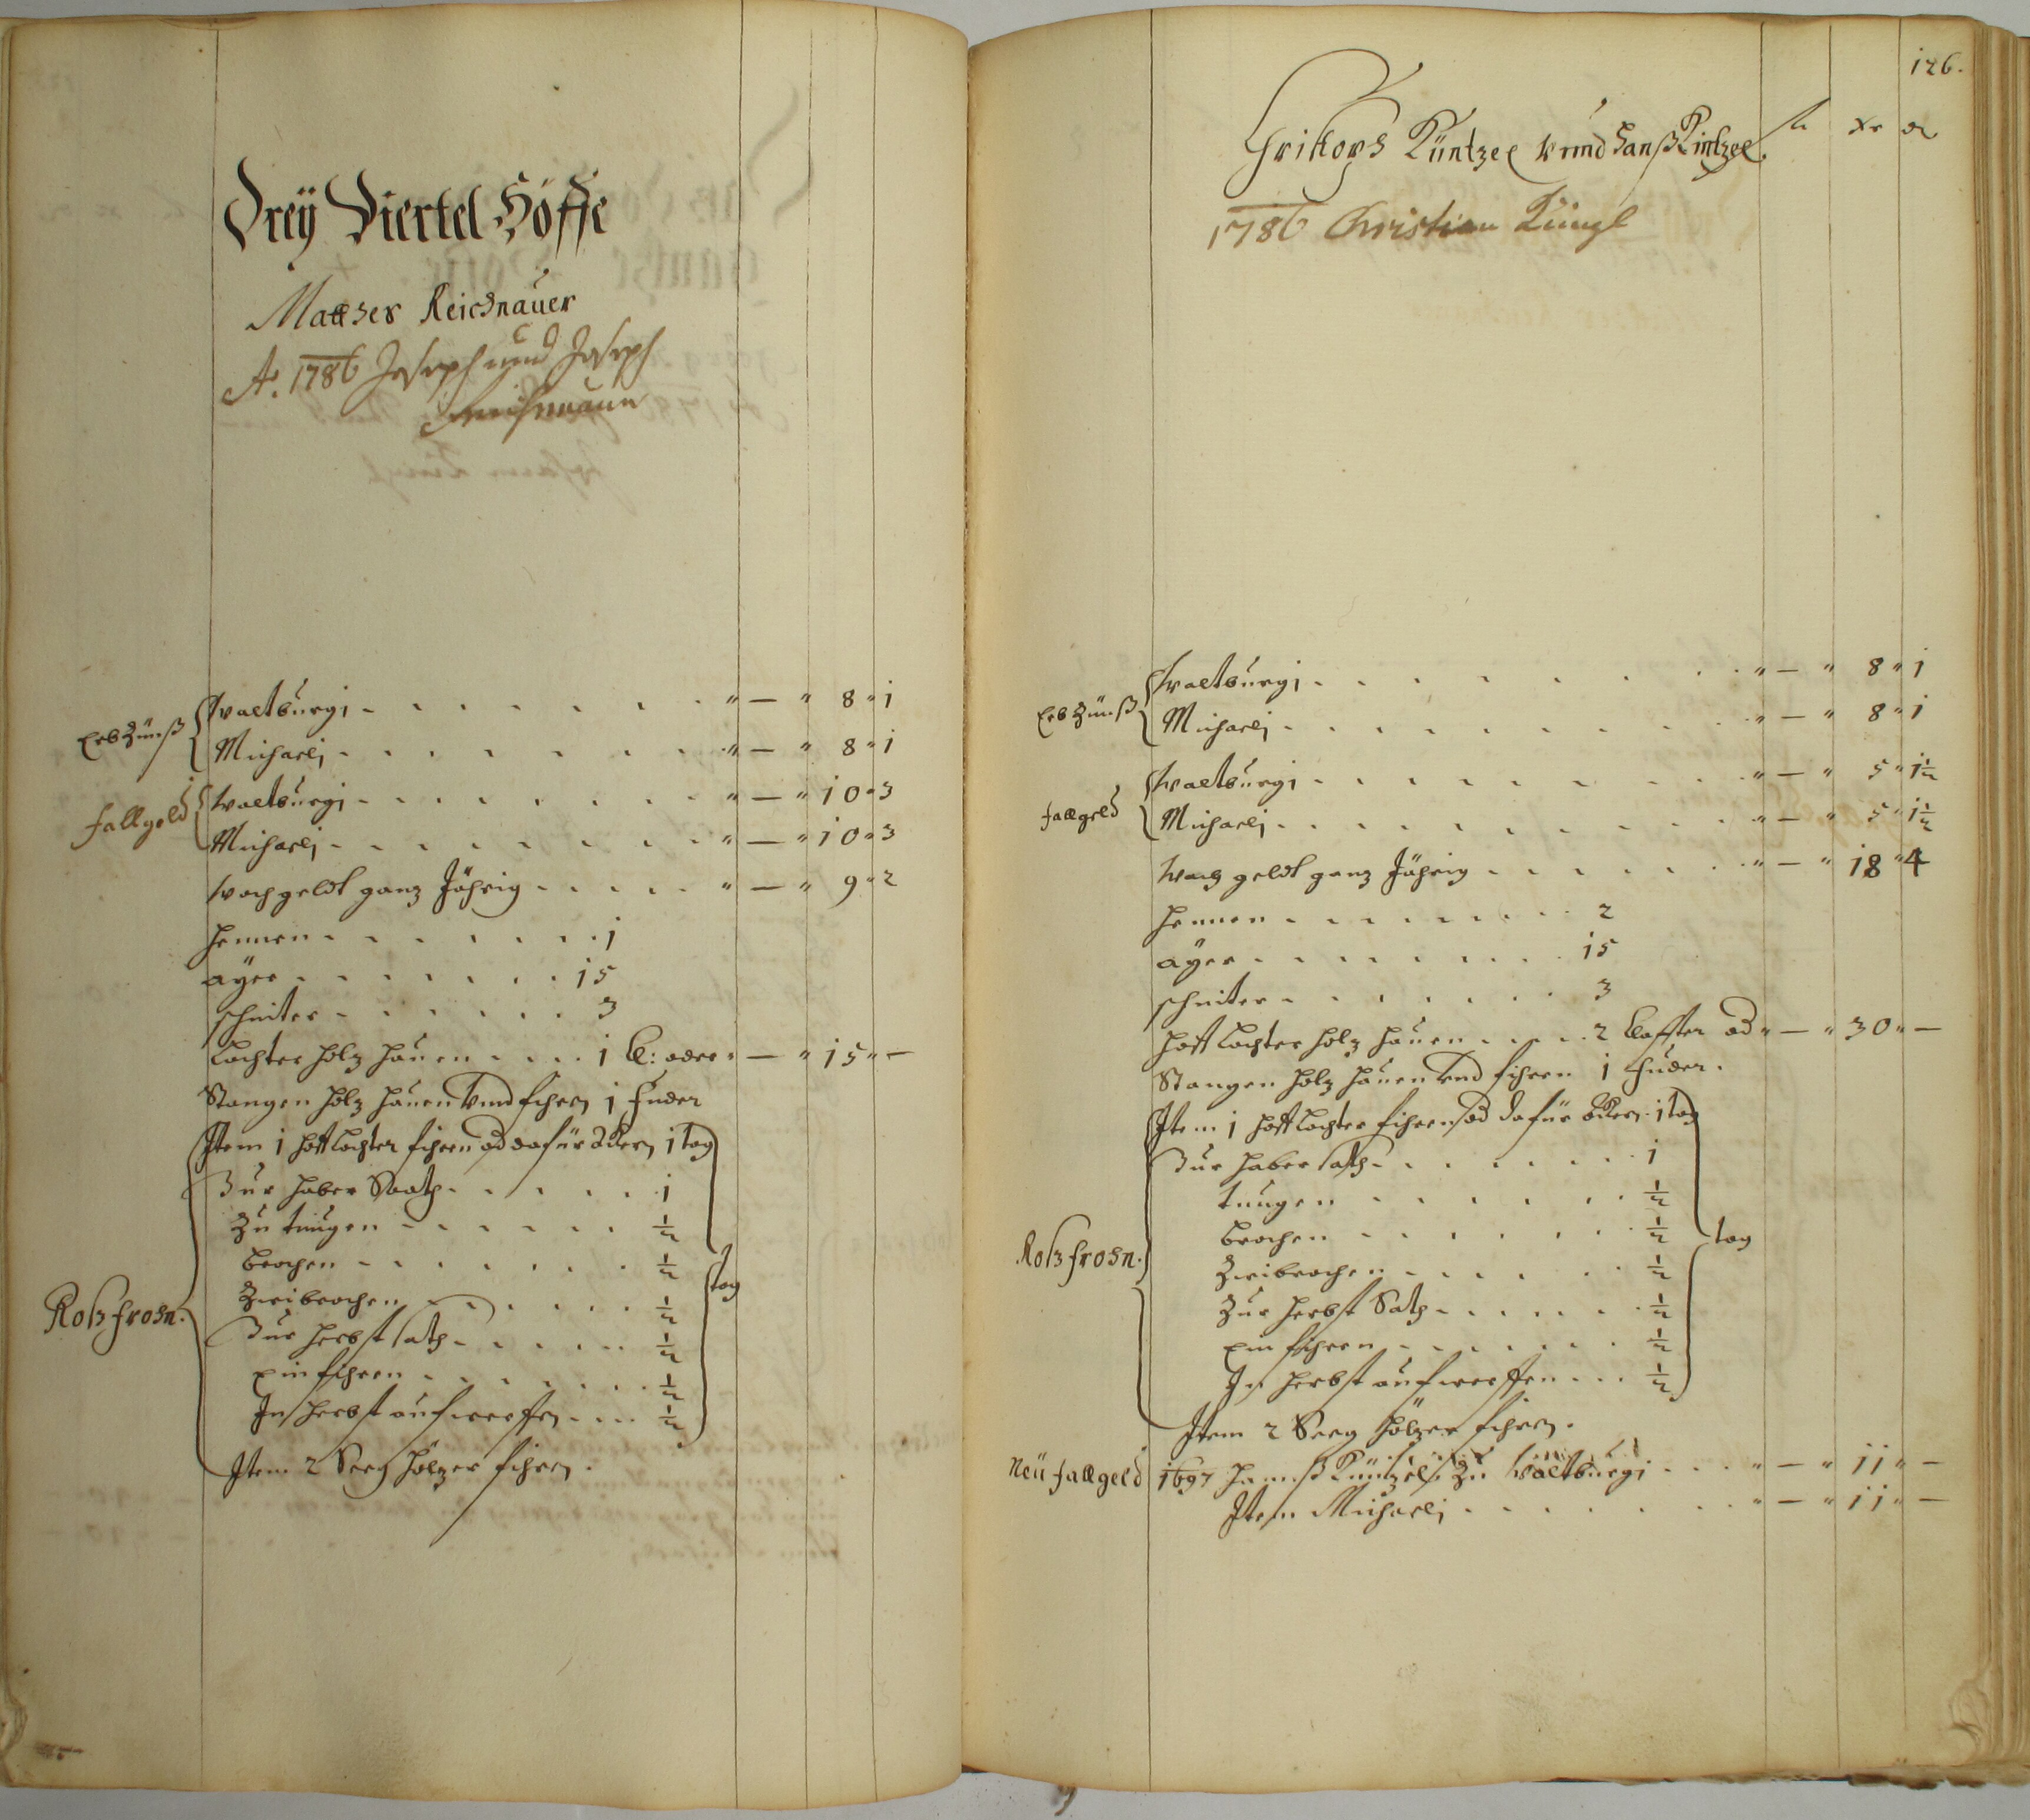 Dreÿ Viertel Höffe
Mathes Reichnauer
A: 1786 Joseph und Joseph
Erb Zünß
Waltburgi - - - - - - - " — " 8 " 1
Michaeli - - - - - - - " — " 8 " 1
fallgeld
Waltburgi - - - - - - - " — " 10 " 3
Michaeli - - - - - - - " — " 10 " 3
Wachgeldt ganz Jährig - - - - - " — " 9 " 2
Hennen - - - - - - - 1
äyer - - - - - - - 15
schniter - - - - - - 3
Lachter Holz hauen - - - - 1 Cl: oder " — " 15 " —
Stangen Holz hauen vnd fihren 1 Fuder
Item 1 hofflachter fihren od dafür ackern 1 tag
Zur Haber Saath - - - - - - 1
Zu tungen - - - - - - ½
brachen - - - - - - - ½
Zwibrachen - - - - - - ½
tag
Roß frohn.
Zur Herbst sath - - - - - ½
Einfihren - - - - - - ½
In Herbst aufwerffen - - - ½
Item 2 Seeg Hölzer fihren.
126.
fl xr d
Christoph Küntzel vnnd Hanß Kintzel.
1786 Christian Künzl
Erb Zünß
Waltburgi - - - - - - - " — " 8 " 1
Michaeli - - - - - - - " — " 8 " 1
fallgeld
Waltburgi - - - - - - - " — " 5 " 1½
Michaeli - - - - - - - " — " 5 " 1½
Wachgeldt ganz Jährig - - - - - - " — " 18 " 4
Hennen - - - - - - - 2
äyer - - - - - - - 15
schniter - - - - - - 3
Hofflachter Holz hauen - - - - 2 Claffter od " — " 30 " —
Stangen Holz hauen vnd fihren 1 Fuder.
Item 1 hofflachter fihren od dafür ackern 1 tag
Zur Haber sath - - - - - - 1
tungen - - - - - - ½
brachen - - - - - - ½
tag
Roß frohn.
Zwibrachen - - - - - ½
Zur Herbst Sath - - - - - ½
Einfihren - - - - - - ½
In Herbst aufwerffen - - - ½
Item 2 Seeg Hölzer fihren.
Neü fallgeld
1697 Hannß Küntzel Zu Waltburgi - - - " — " 11 " —
Item Michaeli - - - - - - " — " 11 " —